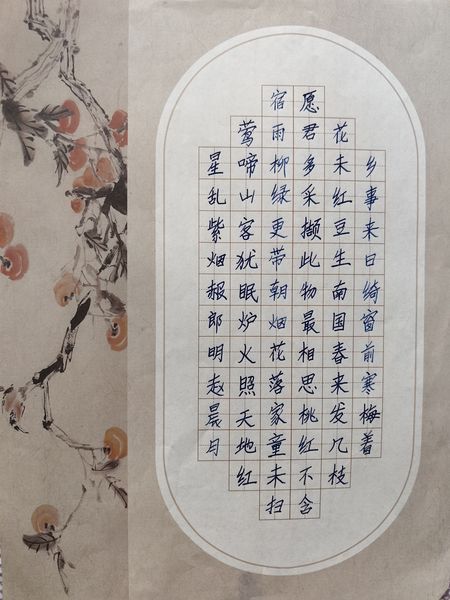 乡事来日绮窗前寒梅着
花未红豆生南国春来发几枝
愿君多采撷此物最相思桃红不含
宿雨柳绿更带朝烟花落家童未扫
莺啼山客犹眠炉火照天地红
星乱紫烟赧郎明赵晨月